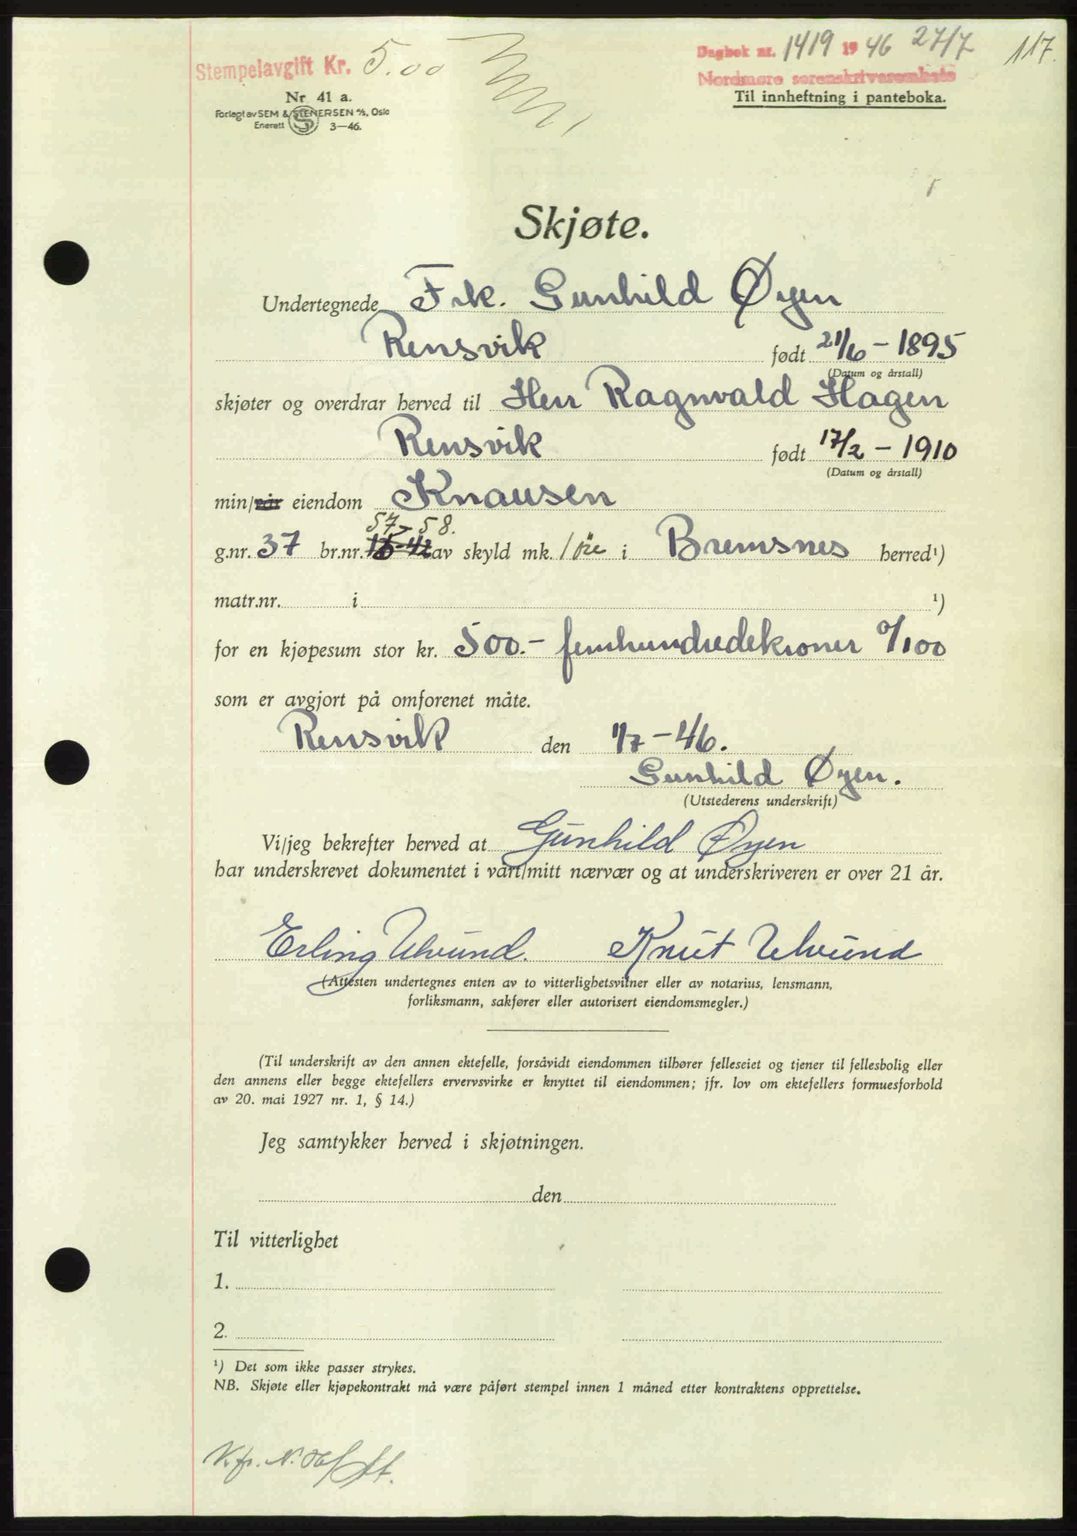 Stempelavgift Kr. 5.00
Dagbok nr. 1419 1946 27/7 117.
Nordmøre sorenskriverembete
Til innheftning i panteboka.
Nr. 41 a.
Forlegt av SEM & STENERSEN A/S, Oslo
Enerett S 3—46.
Skjøte.
Undertegnede Frk. Gunhild Øyen
Rensvik født 21/6 - 1895
(Datum og årstall)
skjøter og overdrar herved til Herr Ragnvald Hagen
Rensvik født 17/2 - 1910
(Datum og årstall)
min/vår eiendom Knausen
57 58.
g.nr. 37 br.nr. av skyld mk. / øre i Bremsnes herred¹)
matr.nr. i ¹)
for en kjøpesum stor kr. 500.- femhundredekroner 0/100
som er avgjort på omforenet måte.
Rensvik den 1/7 - 46.
Gunhild Øyen.
(Utstederens underskrift)
Vi/jeg bekrefter herved at Gunhild Øyen
har underskrevet dokumentet i vårt/mitt nærvær og at underskriveren er over 21 år.
Erling Ulvund. Knut Ulvund
(Attesten undertegnes enten av to vitterlighetsvitner eller av notarius, lensmann,
forliksmann, sakfører eller autorisert eiendomsmegler.)
(Til underskrift av den annen ektefelle, forsåvidt eiendommen tilhører felleseiet og tjener til fellesbolig eller
den annens eller begge ektefellers ervervsvirke er knyttet til eiendommen; jfr. lov om ektefellers formuesforhold
av 20. mai 1927 nr. 1, § 14.)
Jeg samtykker herved i skjøtningen.
den
Til vitterlighet
1.
2.
¹) Det som ikke passer strykes.
NB. Skjøte eller kjøpekontrakt må være påført stempel innen 1 måned etter kontraktens opprettelse.